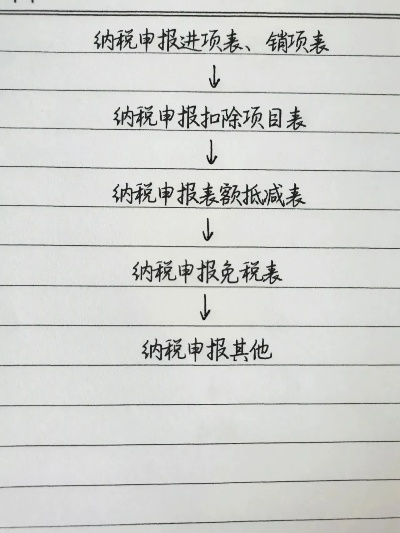 纳税申报进项表、销项表
↓
纳税申报扣除项目表
↓
纳税申报表额抵减表
↓
纳税申报免税表
↓
纳税申报其他